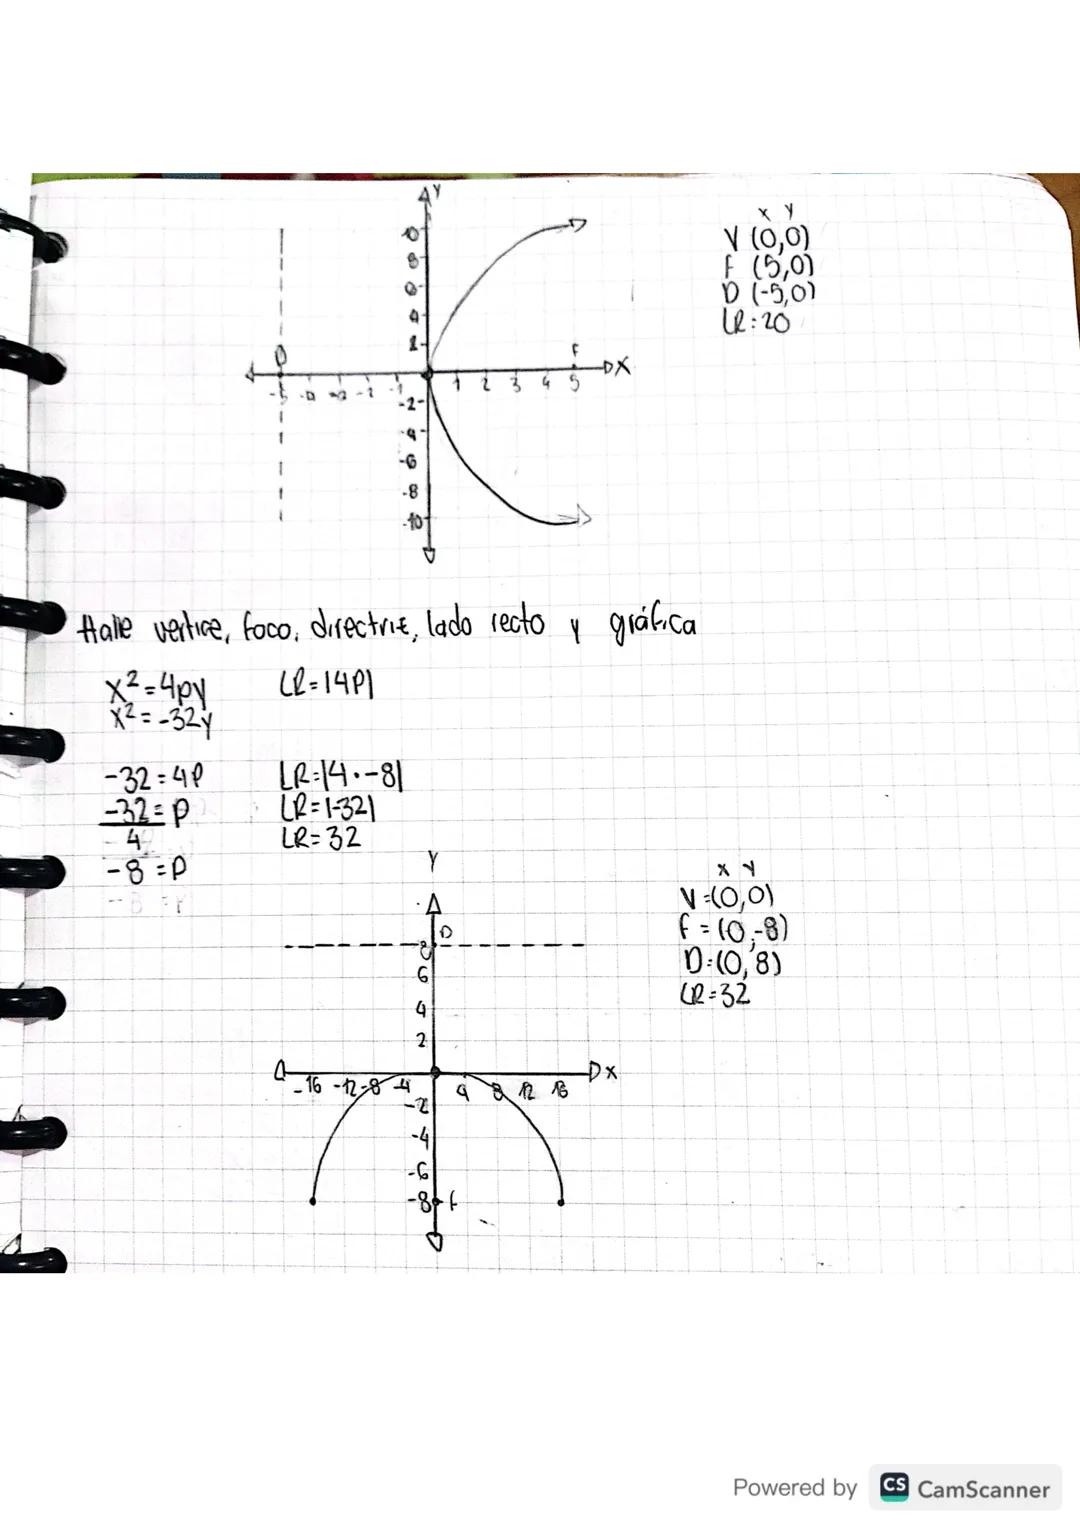 Y
10
8
6
4
2
D
F
X
-5 -4 -3 -2 -1 1 2 3 4 5
-2
-4
-6
-8
-10
x y
V (0,0)
F (5,0)
D (-5,0)
LR: 20
Halle vertice, foco, directriz, lado recto y gráfica
x²=4py LR=|4P|
x²=-32y
-32=4P LR=|4·-8|
-32=P LR=|-32|
4 LR=32
-8=P
Y
D
8
6
4
2
X
-16 -12 -8 -4 4 8 12 16
-2
-4
-6
-8 f
x y
V=(0,0)
F=(0,-8)
D:(0,8)
LR=32
Powered by CS CamScanner